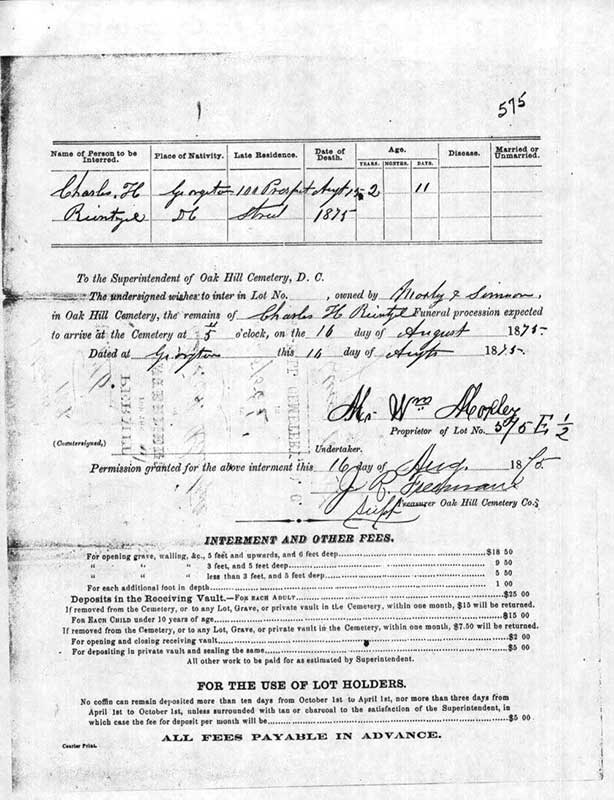 575
Name of Person to be Interred. Place of Nativity. Late Residence. Date of Death. Age. Disease. Married or Unmarried.
YEARS. MONTHS. DAYS.
Charles. H Georgetown 100 Prospect Augt 15 2 11
Rientzel DC Street 1875
To the Superintendent of Oak Hill Cemetery, D. C.
The undersigned wishes to inter in Lot No. , owned by Moxly & Simmons,
in Oak Hill Cemetery, the remains of Charles H Rientzel Funeral procession expected
to arrive at the Cemetery at 5 o'clock, on the 16 day of August 1875-
Dated at Georgetown this 16 day of Augt 1875-
Mr Wm Moxley
Proprietor of Lot No. 575 E 1/2
(Countersigned,)
Undertaker.
Permission granted for the above interment this 16 day of Aug. 1875.
J. R.
Supt Treasurer Oak Hill Cemetery Co.
INTERMENT AND OTHER FEES.
For opening grave, walling, &c., 5 feet and upwards, and 6 feet deep $18 50
" " " 3 feet, and 5 feet deep 9 50
" " " less than 3 feet, and 5 feet deep 5 50
For each additional foot in depth 1 00
Deposits in the Receiving Vault.—FOR EACH ADULT $25 00
If removed from the Cemetery, or to any Lot, Grave, or private vault in the Cemetery, within one month, $15 will be returned.
FOR EACH CHILD under 10 years of age $15 00
If removed from the Cemetery, or to any Lot, Grave, or private vault in the Cemetery, within one month, $7.50 will be returned.
For opening and closing receiving vault $2 00
For depositing in private vault and sealing the same $5 00
All other work to be paid for as estimated by Superintendent.
FOR THE USE OF LOT HOLDERS.
No coffin can remain deposited more than ten days from October 1st to April 1st, nor more than three days from
April 1st to October 1st, unless surrounded with tan or charcoal to the satisfaction of the Superintendent, in
which case the fee for deposit per month will be $5 00
ALL FEES PAYABLE IN ADVANCE.
Courier Print.